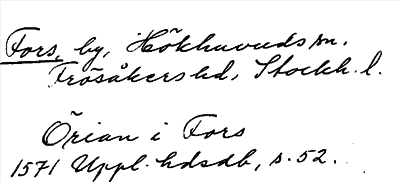 Fors, by, Hökhuvuds sn.
Frösåkers hd, Stockh. l.
Örian i Fors
1571 Uppl. hdsdb, s. 52.